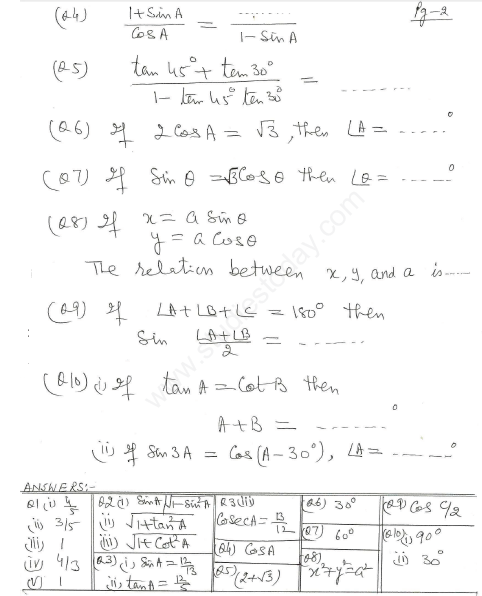 Pg-2
(Q4) (1+SinA)/CosA = ........./(1-SinA)
(Q5) (tan 45° + tan 30°)/(1 - tan 45° tan 30°) = .........
(Q6) If 2CosA = √3, then ∠A = ......°
(Q7) If Sin θ = √3Cosθ then ∠θ = ......°
(Q8) If x = a Sinθ
y = a Cosθ
The relation between x, y, and a is......
(Q9) If ∠A+∠B+∠C = 180° then
Sin (∠A+∠B)/2 = .........
(Q10) (i) If tan A = Cot B then
A+B = .........°
(ii) If Sin 3A = Cos(A-30°), ∠A = .........°
www.studiestoday.com
ANSWERS:-
Q1 (i) 4/5
(ii) 3/5
(iii) 1
(iv) 4/3
(v) 1
Q2 (i) SinA/√1-Sin²A
(ii) √1+tan²A
(iii) √1+Cot²A
Q3) (i) SinA = 12/13
(ii) tanA = 12/5
Q3 (iii)
CosecA = 13/12
(Q4) CosA
Q5) (2+√3)
(Q6) 30°
(Q7) 60°
(Q8)
x²+y²=a²
(Q9) Cos C/2
(Q10) (i) 90°
(ii) 30°